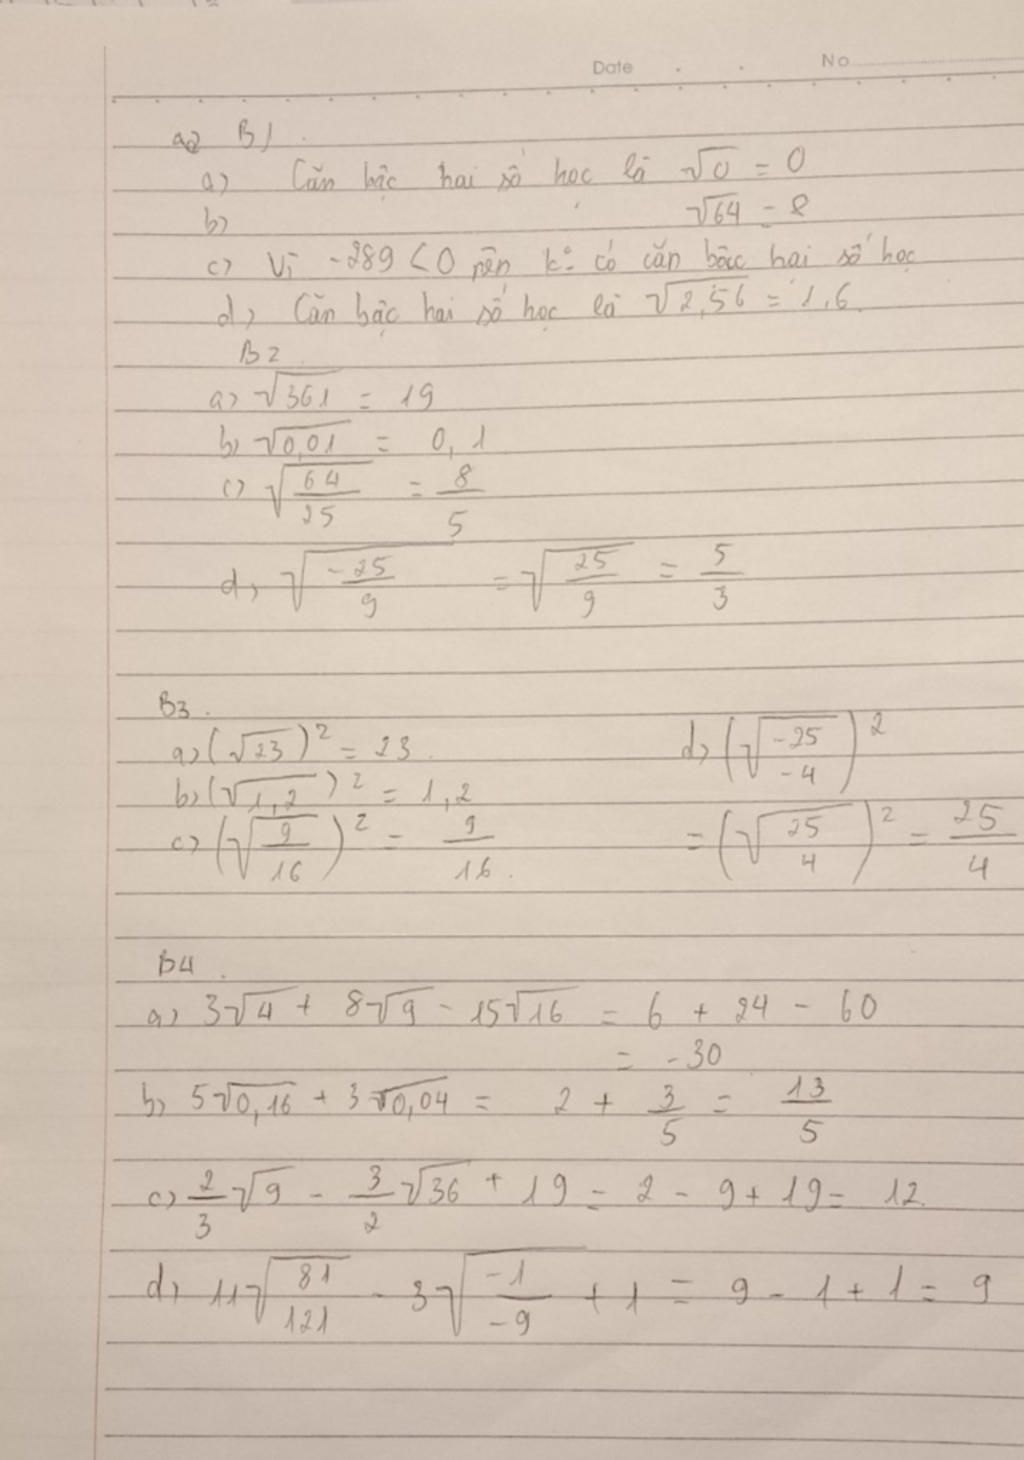 Date No
a2 B1.
a) Căn bậc hai số học là √0 = 0
b) √64 = 8
c) Vì -289 < 0 nên k° có căn bậc hai số học
d) Căn bậc hai số học là √2,56 = 1,6.
B2.
a) √361 = 19
b) √0,01 = 0,1
c) √(64/25) = 8/5
d) √(-25/9) = √(25/9) = 5/3
B3.
a) (√23)² = 23.
b) (√1,2)² = 1,2
c) (√(9/16))² = 9/16.
d) (√(-25/-4))²
= (√(25/4))² = 25/4
B4.
a) 3√4 + 8√9 - 15√16 = 6 + 24 - 60
= -30
b) 5√0,16 + 3√0,04 = 2 + 3/5 = 13/5
c) 2/3√9 - 3/2√36 + 19 = 2 - 9 + 19 = 12.
d) 11√(81/121) - 3√(-1/-9) + 1 = 9 - 1 + 1 = 9